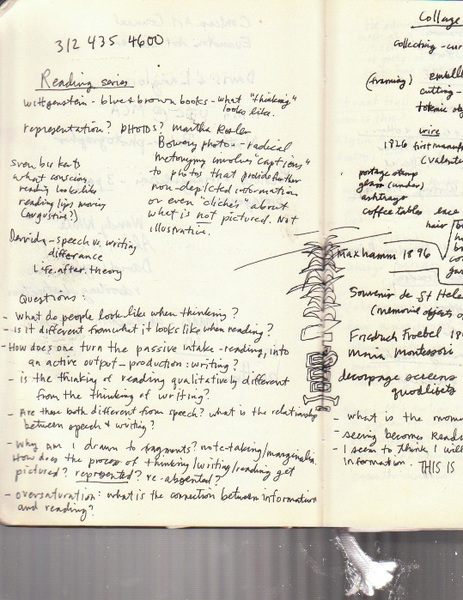 312 435 4600
Reading series
Wittgenstein - blue & brown books - what "thinking"
looks like.
representation? photos? Martha Rosler
Bowery photos - radical
metonymy involves "captions"
to photos that provide further
non-depicted information
or even "clichés" about
what is not pictured. Not
illustrative.
sven birkerts
what
reading looks like
reading lips moving
(augustine?)
Derrida - speech vs. writing
differance
Life. after. theory
Questions:
- What do people look like when thinking?
- Is it different from what it looks like when reading?
- How does one turn the passive intake - reading, into
an active output - production: writing?
- is the thinking of reading qualitatively different
from the thinking of writing?
- Are then both different from speech? what is the relationship
between speech & writing?
- Why am I drawn to fragments? note-taking/marginalia.
How does the process of thinking/writing/reading get
pictured? represented? re-absented?
- oversaturation: what is the connection between information
and reading?
Collage
collecting - cur
(framing) embelli
cutting -
totemic obj
wire
1826 first manuf
(valenti
postage stamp
glass (under)
ashtrays
coffee tables lace
hair
Max hamm 1896
Souvenir de St Hele
(memorial objects o
Friedrich Froebel 18
Maria Montessori
decoupage screens
quodlibets
- what is the mom
- seeing become read
- I seem to think I will
information. THIS IS